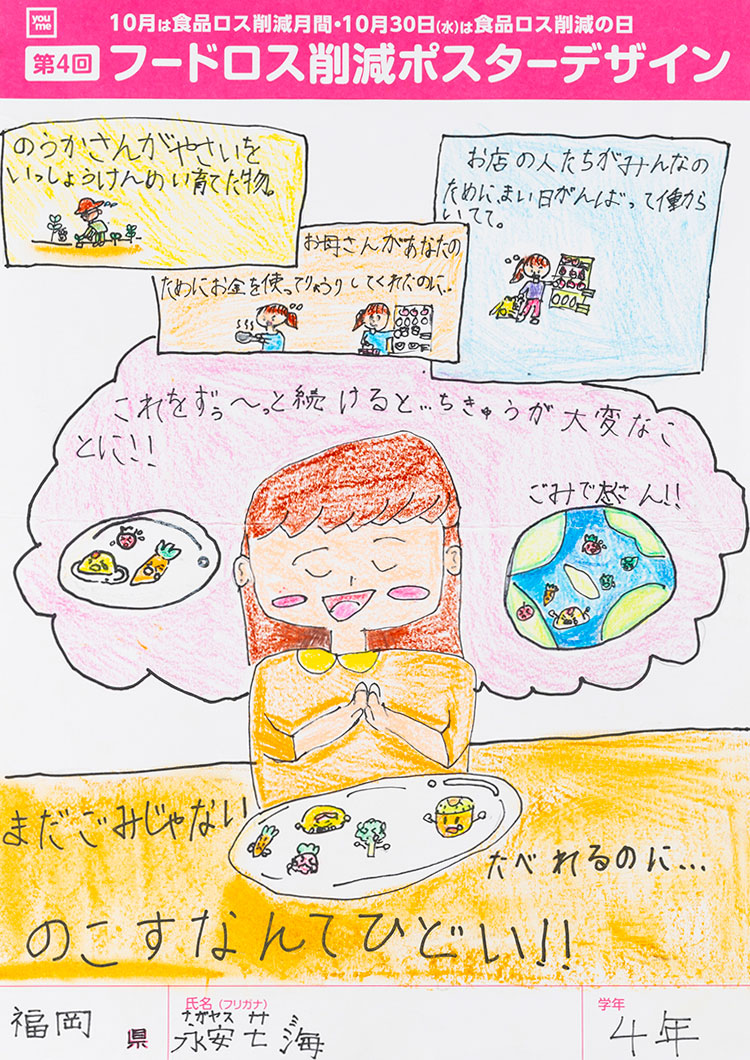 you me
10月は食品ロス削減月間・10月30日(水)は食品ロス削減の日
第4回 フードロス削減ポスターデザイン
のうかさんがやさいを
いっしょうけんめい育てた物。
お店の人たちがみんなの
ために、まい日がんばって働から
いてて。
お母さんがあなたの
ためにお金を使ってりょうりしてくれたのに、
これをずぅ〜っと続けると…ちきゅうが大変なこ
とに!!
ごみで
さん!!
まだごみじゃない
たべれるのに…
のこすなんてひどい!!
福岡 県
氏名(フリガナ)
ナガヤス
永安 海
学年
4年